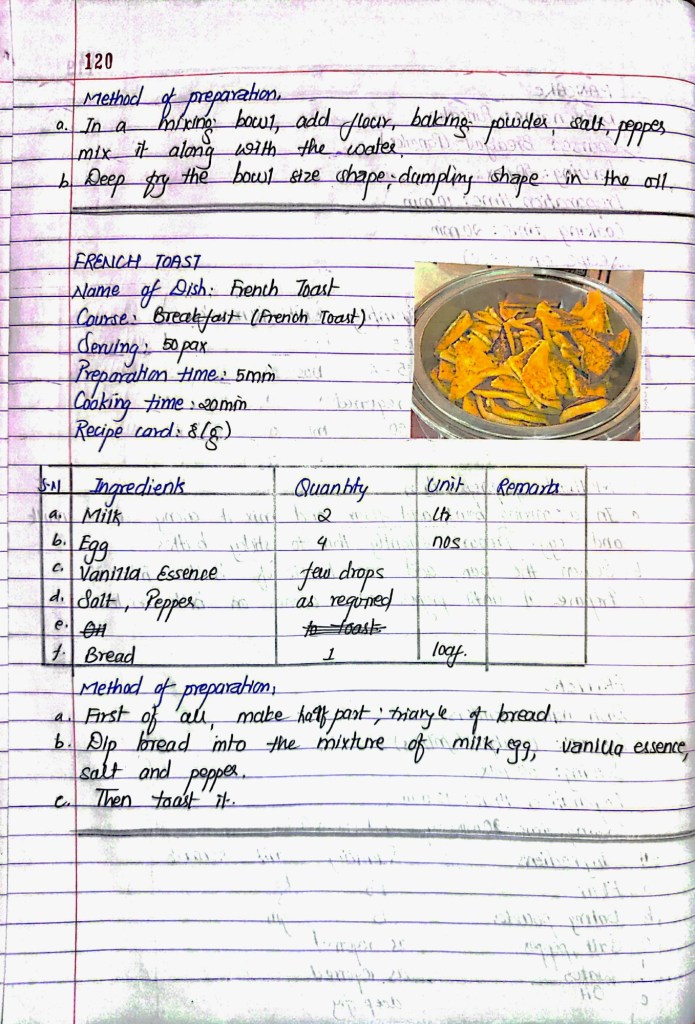 120
Method of preparation,
a. In a mixing bowl, add flour, baking powder, salt, pepper
mix it along with the water.
b. Deep fry the bowl size shape, dumpling shape in the oil.
FRENCH TOAST
Name of Dish: French Toast
Course: Breakfast (French Toast)
Serving: 50 pax
Preparation time: 5min
Cooking time: 20min
Recipe card: 8(g)
S.N Ingredients Quantity Unit Remarks
a. Milk 2 ltr
b. Egg 4 nos
c. Vanilla Essence few drops
d. Salt, Pepper as required
e. Oil to toast
f. Bread 1 loaf.
Method of preparation,
a. First of all, make half part; triangle of bread,
b. Dip bread into the mixture of milk, egg, vanilla essence,
salt and pepper.
c. Then toast it.